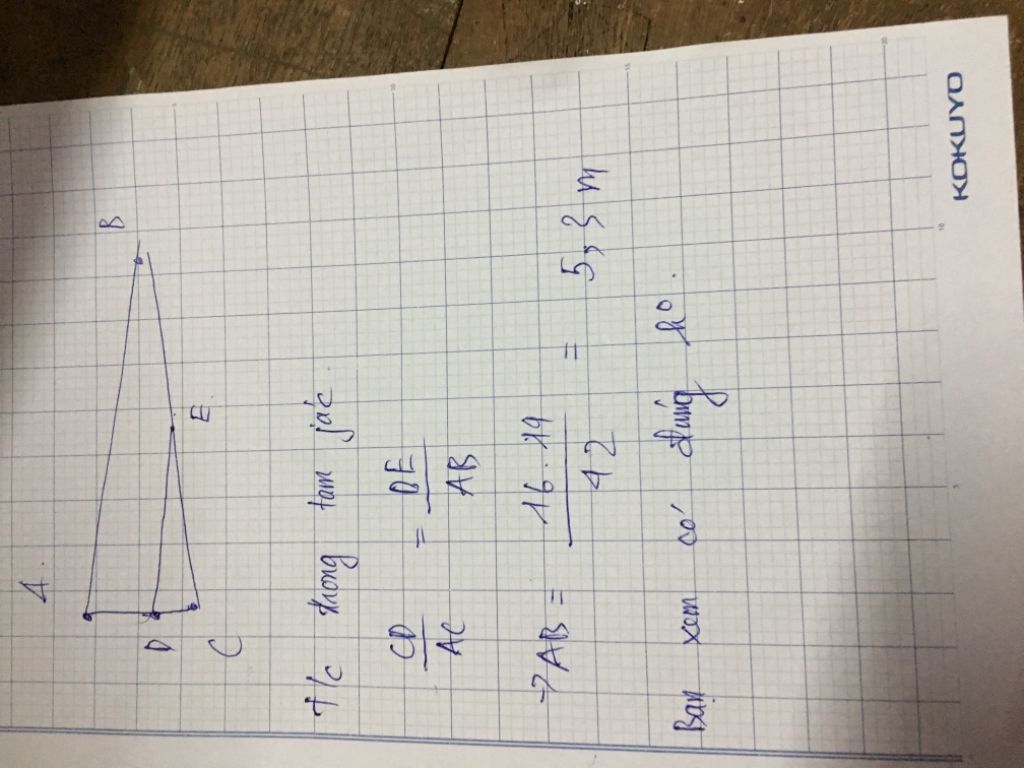 A
B
D
E
C
T/c trong tam jác
CD/AC = DE/AB
→ AB = 16.14/42 = 5,3 m
Bạn xem có đúng ko.
KOKUYO